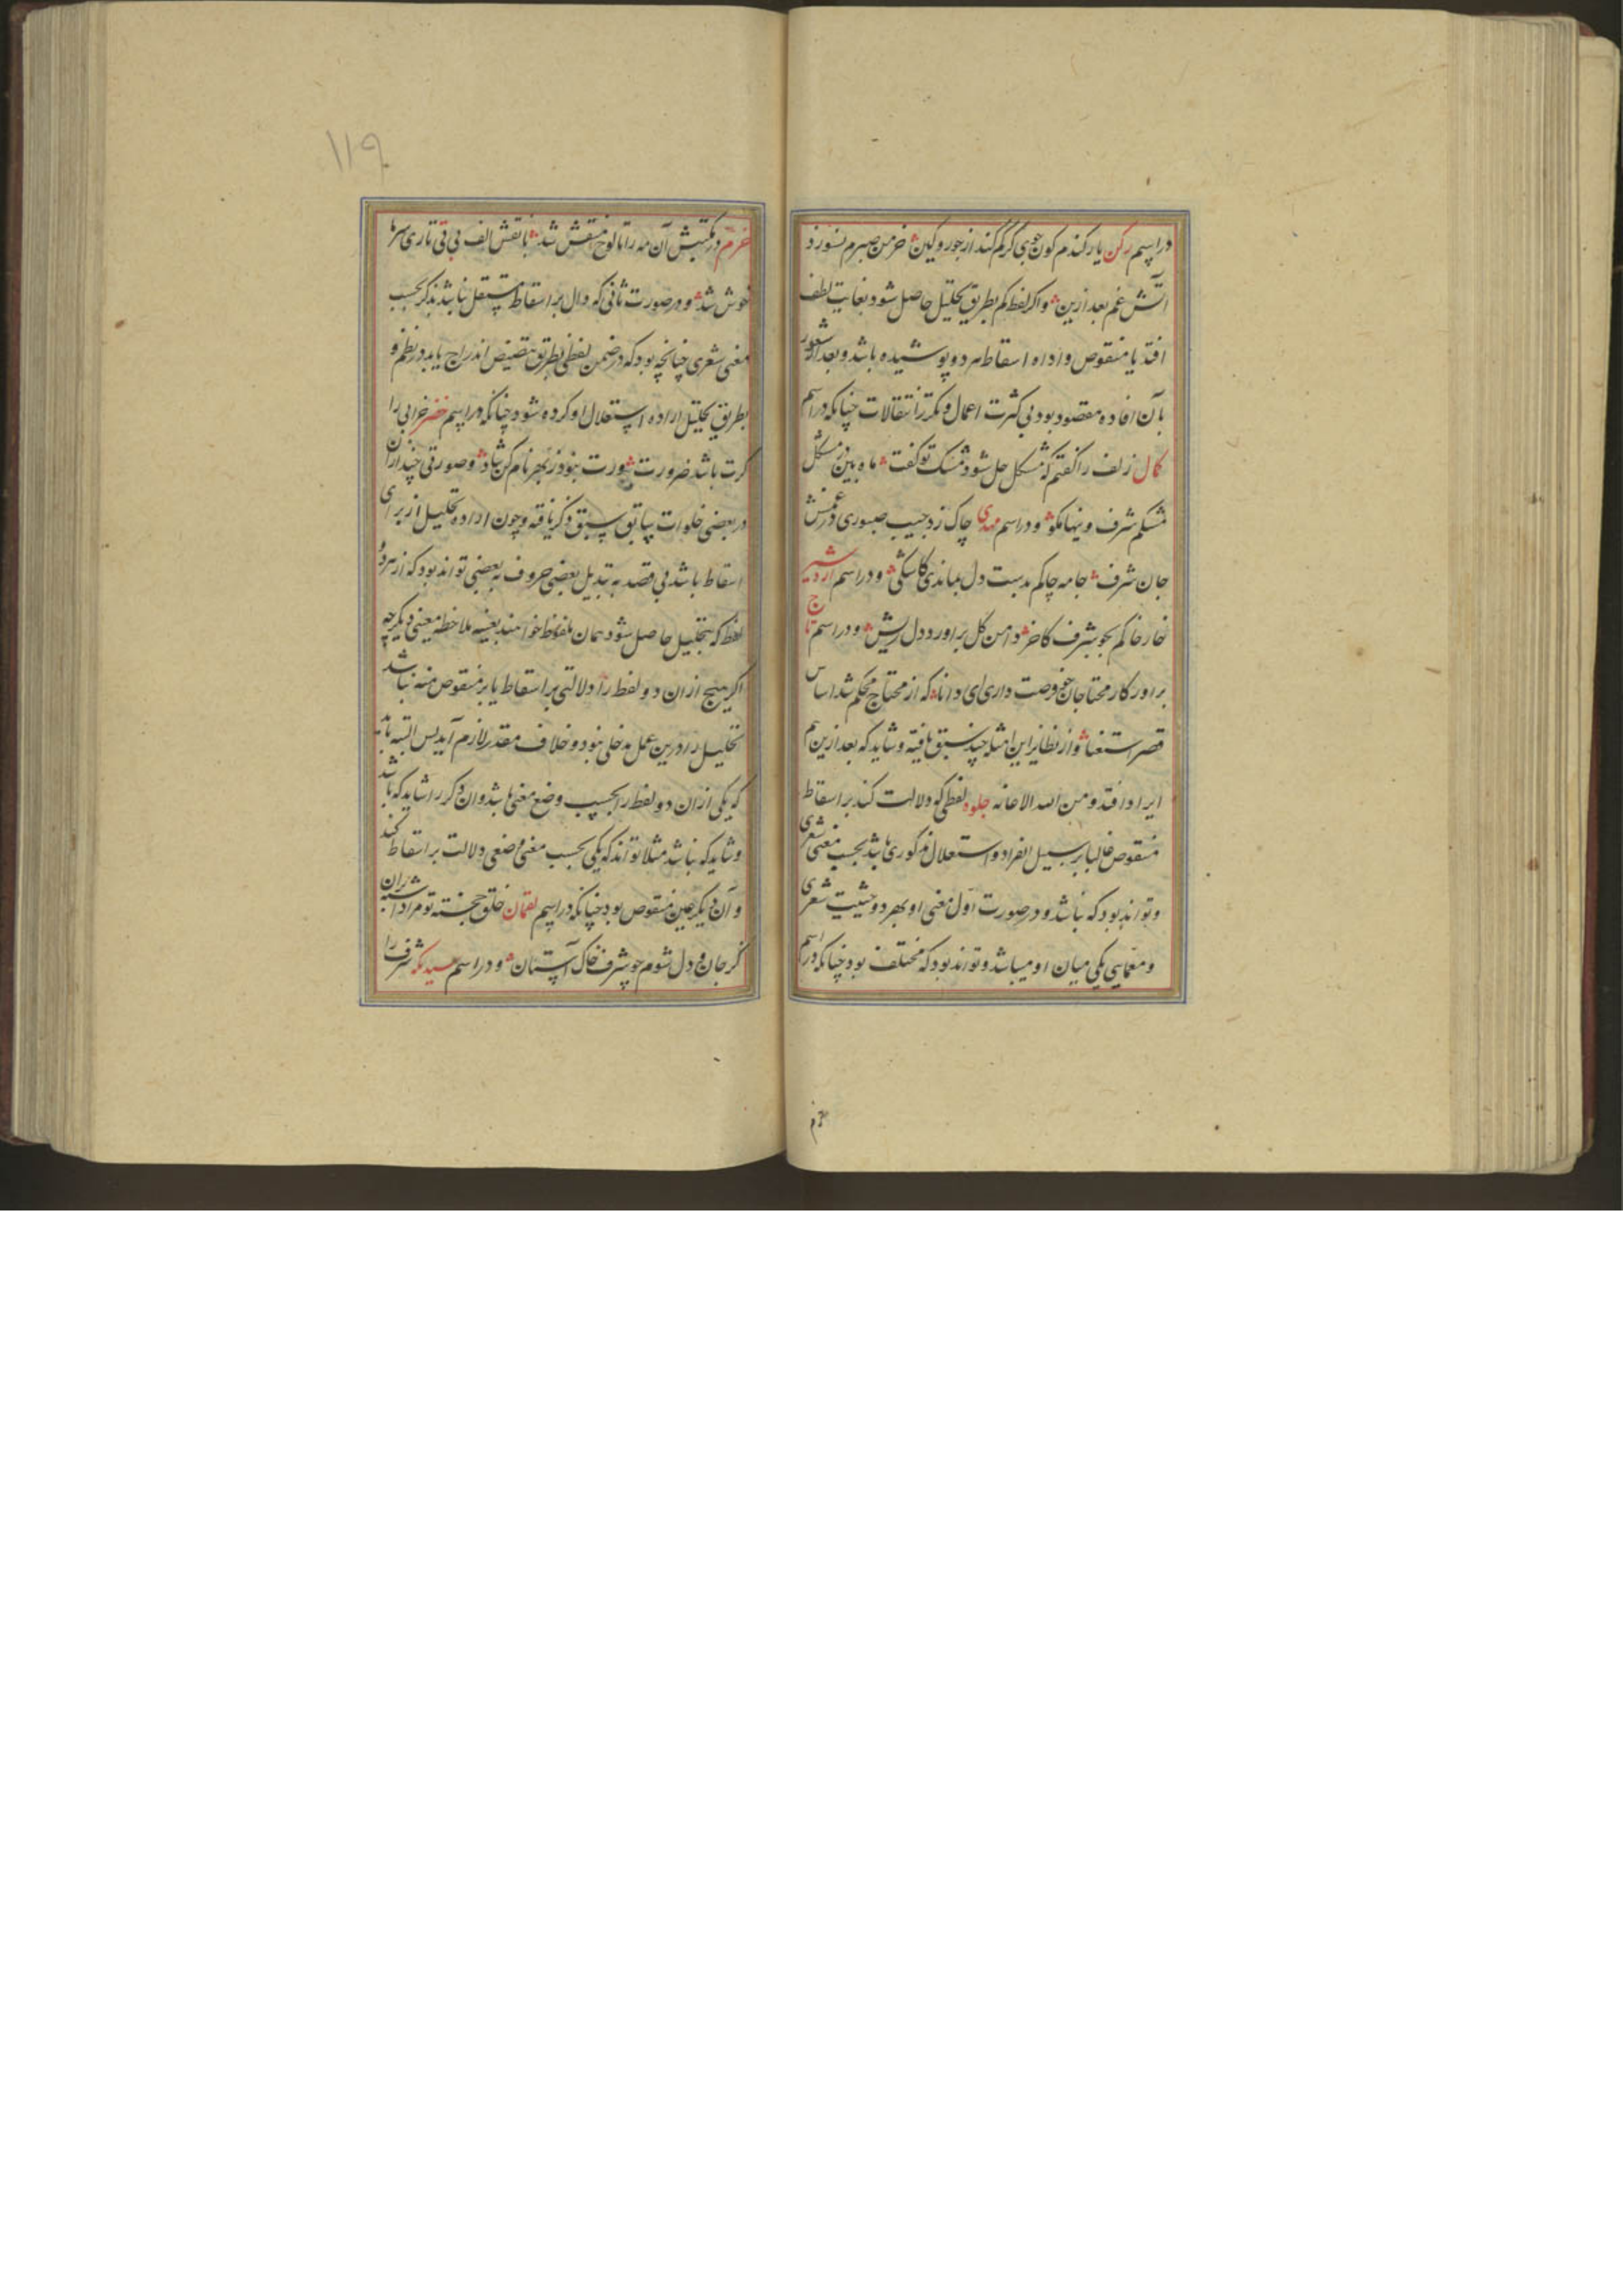 در اسم رکن یار کندم کون جوی کر کم کند از جور و کین خرمن صبرم نسوزد
آتش غم بعد ازین و اگر لفظ کم بطریق تحلیل حاصل شود بغایت لطف
افتد یا منقوص و اداه اسقاط هر دو پوشیده باشد و بعد از شعور
بآن افاده مقصود بود بی کثرت اعمال و تکثر انتقالات چنانکه در اسم
کمال زلف را کفتم که مشکل حل شود مشک تو کفت ماه بین در مشکل
مشکم شرف و ینها مکو و در اسم مهدی چاک زد جیب صبوری در غمش
جان شرف جامه چاکم بدست دل بماندی کاشکی و در اسم اردشیر
خار خاکم بجو شرف کاخر دامن کل بر اورد دل ریش و در اسم تاج
براور کار محتاجان چو فرصت داری ای دانا که از محتاج محکم شد اساس
قصر استغنا و از نظایر این امثله چند سبق یافته و شاید که بعد ازین هم
ایراد افتد و من الله الاعانه جلوه لفظی که دلالت کند بر اسقاط
منقوص غالبا بر سبیل انفراد و استقلال مذکور باشد بحسب معنی شعری
و تواند بود که نباشد و در صورت اول معنی او بهر دو حیثیت شعری
و معمایی یکی میان او میباشد و تواند بود که مختلف بود چنانکه در اسم
خرم
۱۱۹
خرم در مکتبش آن مه را تا لوح منقش شد با نقش الف بی تی تاری سرها
خوش شد و در صورت ثانی که دال بر اسقاط مستقل نباشد بذکر بحسب
معنی شعری چنانچه بود که در ضمن لفظی بطریق تنصیص اندراج یابد در نظم و
بطریق تحلیل اراده استقلال او کرده شود چنانکه در اسم خضر خرابی را
کرت باشد ضرورت بود ز بهر نام کن شاد و صورتی چند از ان
در بعضی خلوات سابق سبق ذکر یافته و چون اراده تحلیل از برای
اسقاط باشد بی قصد به تبدیل بعضی حروف به بعضی تواند بود که از هر دو
لفظ که بتحلیل حاصل شود همان ملفاظ خواهند بعینه ملاحظه معنی دیگر چه
اگر هیچ از ان دو لفظ را دلالتی بر اسقاط یا بر منقوص منه نباشد
تحلیل را درین عمل مدخلی نبود و خلاف مقدر لازم آید پس البته باید
که یکی از ان دو لفظ را بحسب وضع معنی باشد و ان دکر را شاید که باشد
و شاید که نباشد مثلا تواند که یکی بحسب معنی وضعی دلالت بر اسقاط کند
و آن دیگر عین منقوص بود چنانکه در اسم لقمان خلق خجسته تو مراد است بر ان
کز جان و دل شوم چو شرف خاک آستان و در اسم سیدبک شرف را